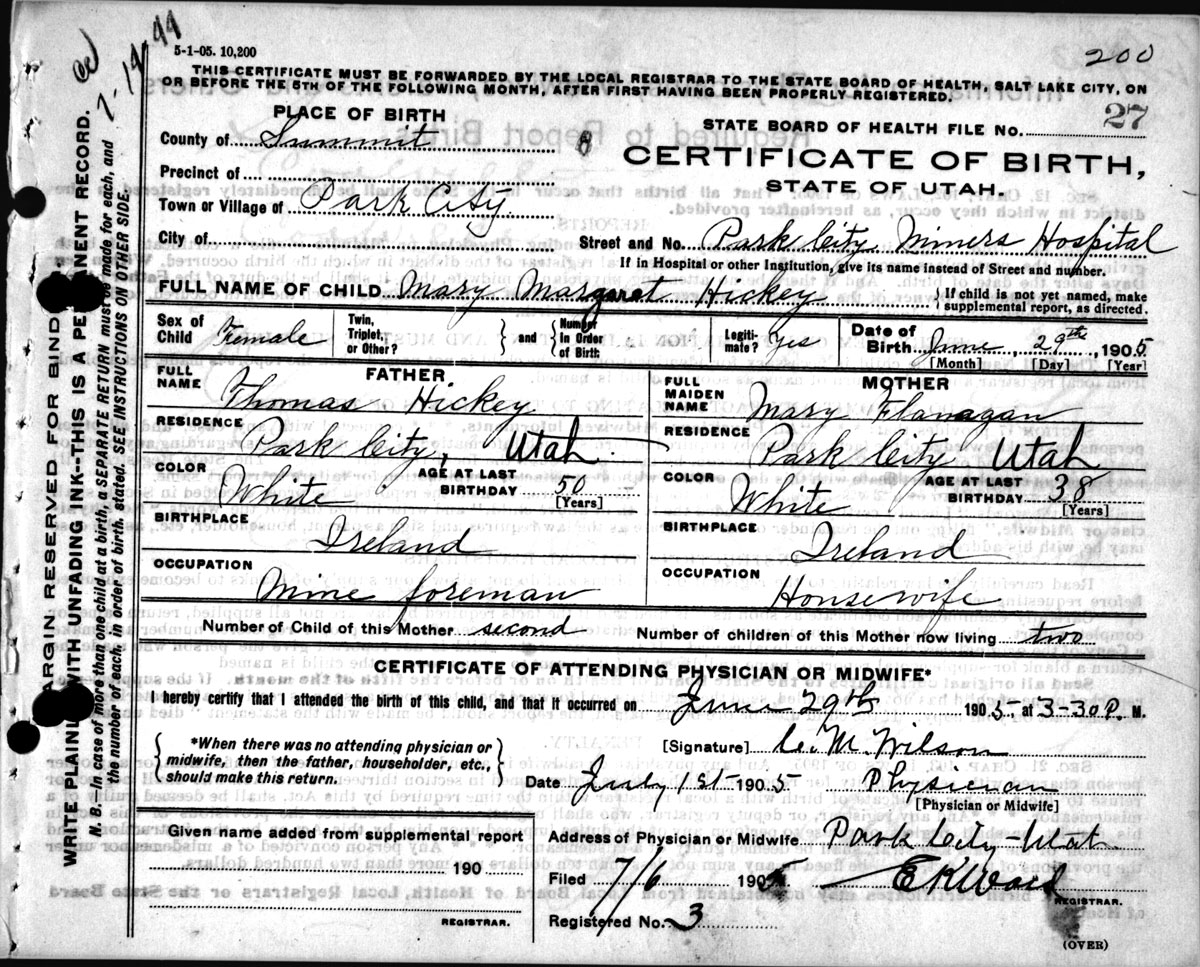 5-1-05. 10,200
200
THIS CERTIFICATE MUST BE FORWARDED BY THE LOCAL REGISTRAR TO THE STATE BOARD OF HEALTH, SALT LAKE CITY, ON
OR BEFORE THE 5TH OF THE FOLLOWING MONTH, AFTER FIRST HAVING BEEN PROPERLY REGISTERED.
PLACE OF BIRTH
STATE BOARD OF HEALTH FILE NO. 27
County of Summit
CERTIFICATE OF BIRTH,
STATE OF UTAH.
Precinct of
Town or Village of Park City.
City of
Street and No. Park City Miners Hospital
If in Hospital or other Institution, give its name instead of Street and number.
FULL NAME OF CHILD Mary Margaret Hickey
{If child is not yet named, make
supplemental report, as directed.
Sex of Child Female
Twin, Triplet, or Other?
and Number In Order of Birth
Legitimate? yes
Date of Birth June, 29th, 1905
[Month] [Day] [Year]
FATHER
FULL NAME Thomas Hickey
RESIDENCE Park City, Utah
COLOR White
AGE AT LAST BIRTHDAY 50 [Years]
BIRTHPLACE Ireland
OCCUPATION Mine foreman
MOTHER
FULL MAIDEN NAME Mary Flanagan
RESIDENCE Park City Utah
COLOR White
AGE AT LAST BIRTHDAY 38 [Years]
BIRTHPLACE Ireland
OCCUPATION Housewife
Number of Child of this Mother second
Number of children of this Mother now living two
CERTIFICATE OF ATTENDING PHYSICIAN OR MIDWIFE*
I hereby certify that I attended the birth of this child, and that it occurred on June 29th 1905, at 3-30 P. M.
{*When there was no attending physician or
midwife, then the father, householder, etc.,
should make this return.}
[Signature] C. M. Wilson
Date July 1st 1905
Physician
[Physician or Midwife]
Given name added from supplemental report
190
REGISTRAR.
Address of Physician or Midwife Park City-Utah
Filed 7/6 1905
REGISTRAR.
Registered No. 3
(OVER)
MARGIN RESERVED FOR BINDING
WRITE PLAINLY WITH UNFADING INK--THIS IS A PERMANENT RECORD.
N. B.--In case of more than one child at a birth, a SEPARATE RETURN must be made for each, and
the number of each, in order of birth, stated. SEE INSTRUCTIONS ON OTHER SIDE.